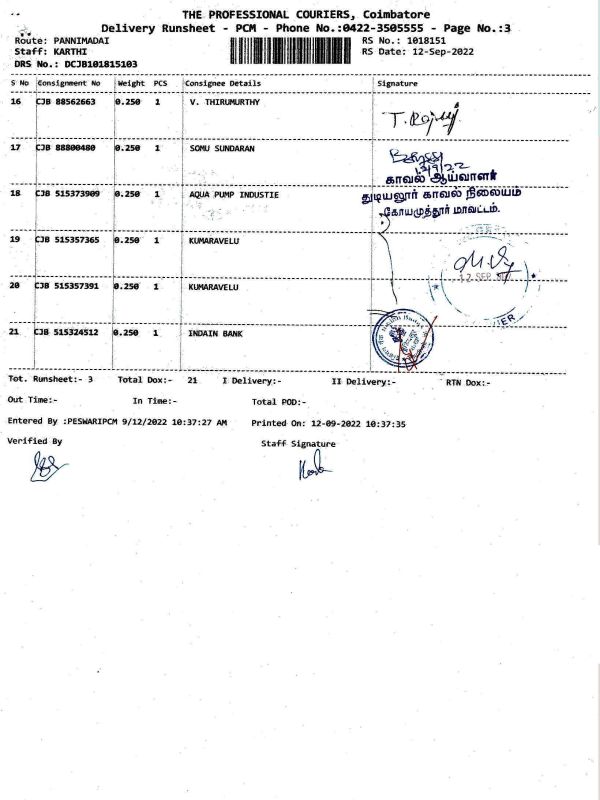 THE PROFESSIONAL COURIERS, Coimbatore
Delivery Runsheet - PCM - Phone No.:0422-3505555 - Page No.:3
Route: PANNIMADAI RS No.: 1018151
Staff: KARTHI RS Date: 12-Sep-2022
DRS No.: DCJB101815103
S No Consignment No Weight PCS Consignee Details Signature
16 CJB 88562663 0.250 1 V. THIRUMURTHY
17 CJB 88800480 0.250 1 SOMU SUNDARAN
காவல் ஆய்வாளர்
18 CJB 515373909 0.250 1 AQUA PUMP INDUSTIE துடியலூர் காவல் நிலையம்
கோயமுத்தூர் மாவட்டம்.
19 CJB 515357365 0.250 1 KUMARAVELU
12 SEP
20 CJB 515357391 0.250 1 KUMARAVELU
21 CJB 515324512 0.250 1 INDAIN BANK
Tot. Runsheet:- 3 Total Dox:- 21 I Delivery:- II Delivery:- RTN Dox:-
Out Time:- In Time:- Total POD:-
Entered By :PESWARIPCM 9/12/2022 10:37:27 AM Printed On: 12-09-2022 10:37:35
Verified By Staff Signature